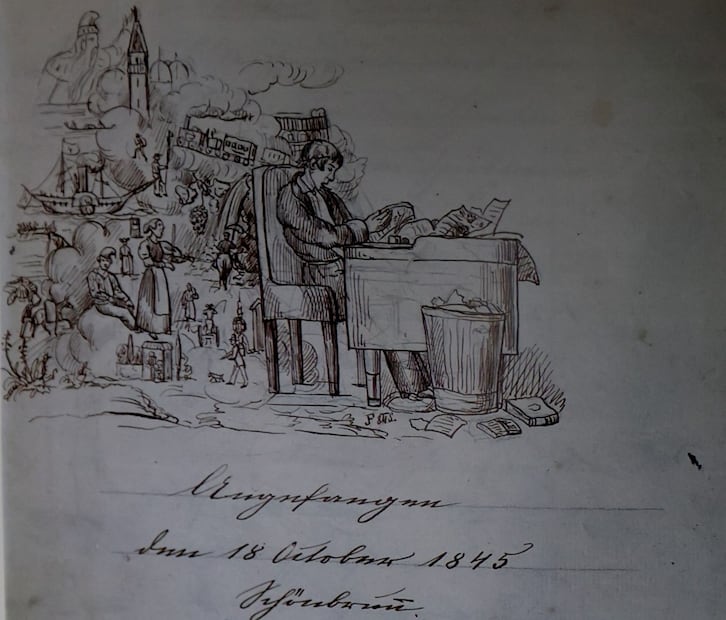 Angefangen
den 18 October 1845
Schönbrunn̄.